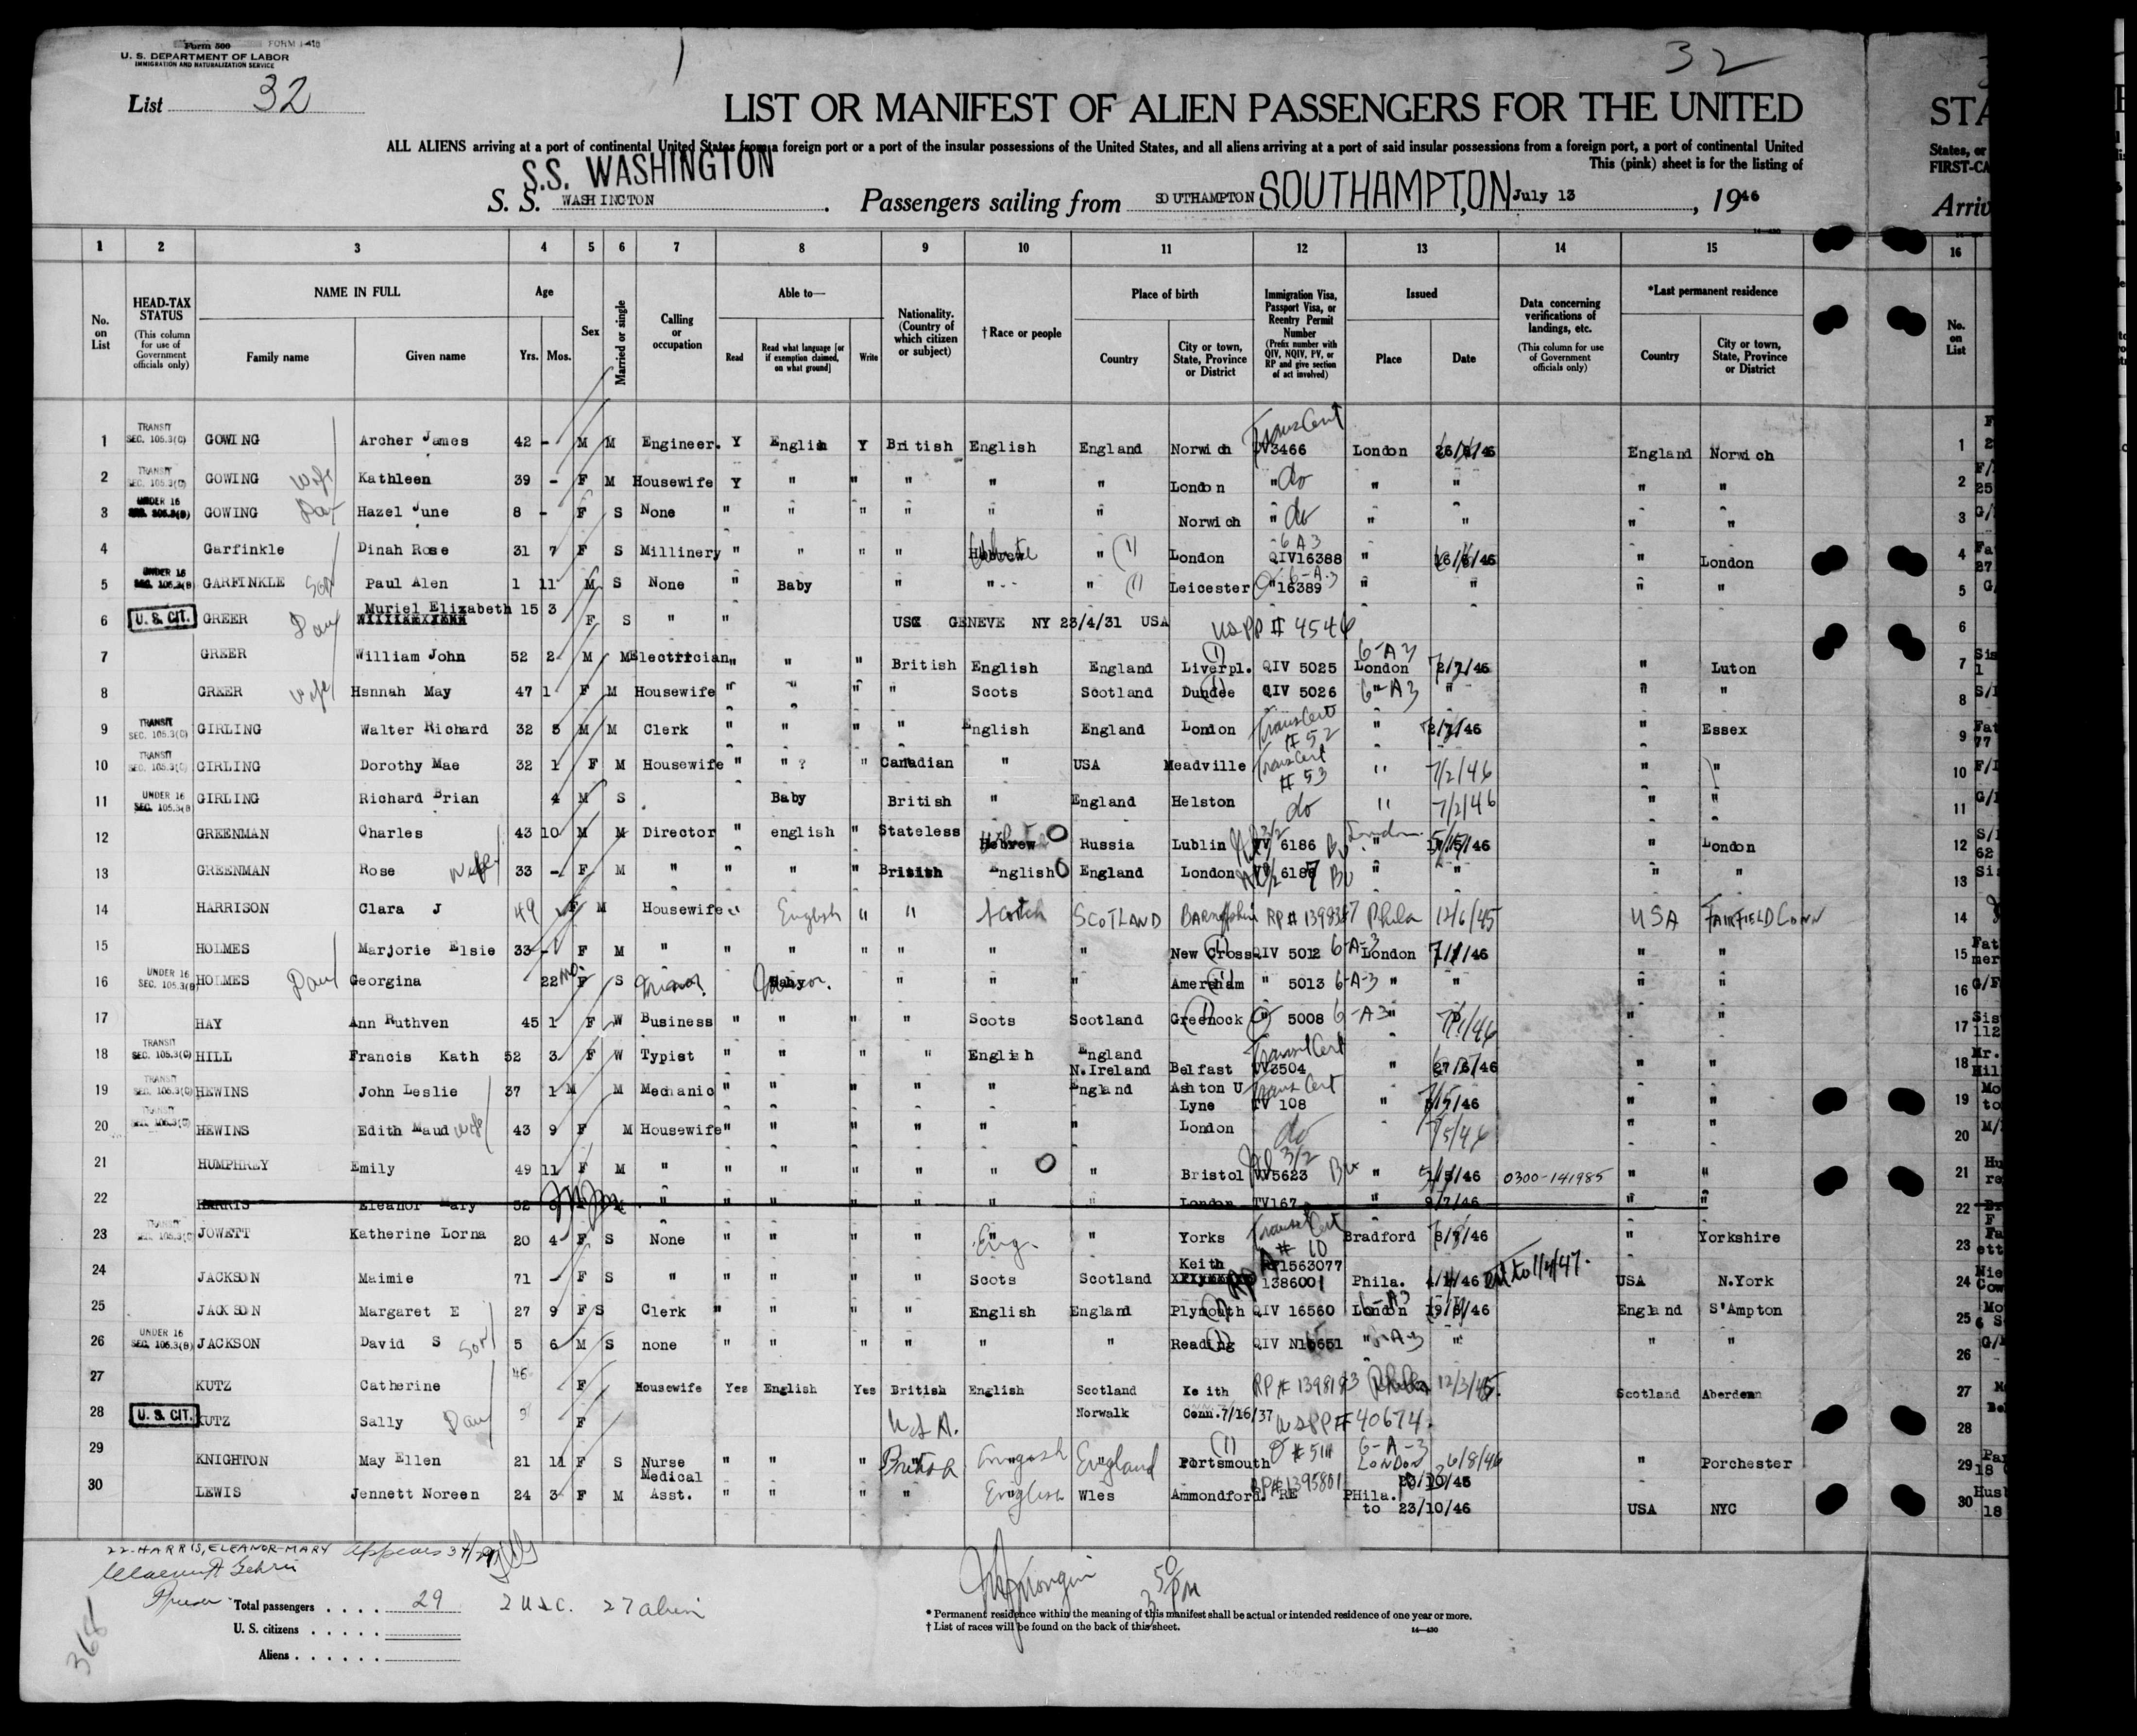 Form 500 FORM I-418
U. S. DEPARTMENT OF LABOR
IMMIGRATION AND NATURALIZATION SERVICE
List 32
32
LIST OR MANIFEST OF ALIEN PASSENGERS FOR THE UNITED
STA
ALL ALIENS arriving at a port of continental United States from a foreign port or a port of the insular possessions of the United States, and all aliens arriving at a port of said insular possessions from a foreign port, a port of continental United
States, or
This (pink) sheet is for the listing of
FIRST-CA
S.S. WASHINGTON
S. S. WASHINGTON. Passengers sailing from SOUTHAMPTON SOUTHAMPTON, July 13, 1946
Arriv
1 2 3 4 5 6 7 8 9 10 11 12 13 14 15 16
No. on List
HEAD-TAX STATUS
(This column for use of Government officials only)
NAME IN FULL
Family name Given name
Age
Yrs. Mos.
Sex
Married or single
Calling or occupation
Able to—
Read
Read what language [or if exemption claimed, on what ground]
Write
Nationality. (Country of which citizen or subject)
† Race or people
Place of birth
Country
City or town, State, Province or District
Immigration Visa, Passport Visa, or Reentry Permit Number
(Prefix number with QIV, NQIV, PV, or RP and give section of act involved)
Issued
Place Date
Data concerning verifications of landings, etc.
(This column for use of Government officials only)
*Last permanent residence
Country
City or town, State, Province or District
No. on List
1 TRANSIT SEC. 105.3(C) GOWING Archer James 42 - M M Engineer. Y English Y British English England Norwich Trans Cert 3466 London 26/6/46 England Norwich 1
2 TRANSIT SEC. 105.3(C) GOWING Wife Kathleen 39 - F M Housewife Y " " " " " London " do " " " " 2
3 UNDER 16 SEC. 105.3(B) GOWING Hazel June 8 - F S None " " " " " " Norwich " do " " " " 3
4 Garfinkle Dinah Rose 31 7 F S Millinery " " " " Hebrew " (1) London 6 A3 QIV16388 " 16/6/46 " London 4
5 UNDER 16 SEC. 105.3(B) GARFINKLE Son Paul Alen 1 11 M S None " Baby " " " (1) Leicester 6-A-3 "16389 " " " " 5
6 U. S. CIT. GREER Dau Muriel Elizabeth 15 3 F S " " USA GENEVE NY 23/4/31 USA US PP # 4546 6
7 GREER William John 52 2 M M Electrician " " " British English England Liverpl. (1) QIV 5025 6-A3 London 2/7/46 " Luton 7
8 GREER Wife Hsnnah May 47 1 F M Housewife " " " " Scots Scotland Dundee (1) QIV 5026 6-A3 " " " 8
9 TRANSIT SEC. 105.3(C) GIRLING Walter Richard 32 5 M M Clerk " " " " English England London Trans Cert # 52 " 2/7/46 " Essex 9
10 TRANSIT SEC. 105.3(C) GIRLING Dorothy Mae 32 1 F M Housewife " " ? " Canadian " USA Meadville Trans Cert # 53 " 7/2/46 " " 10
11 UNDER 16 SEC. 105.3(B) GIRLING Richard Brian 4 M S Baby British " England Helston do " 7/2/46 " " 11
12 GREENMAN Charles 43 10 M M Director " english " Stateless Hebrew Russia Lublin 3/2 6186 London " 15/46 " London 12
13 GREENMAN Wife Rose 33 - F M " " " " British English England London 6187 " " " " 13
14 HARRISON Clara J 49 F M Housewife " English " " Scotch SCOTLAND RP # Phila 12/6/45 USA FAIRFIELD CONN 14
15 HOLMES Marjorie Elsie 33 - F M " " " " " " " New Cross (1) QIV 5012 6-A-3 London 7/1/46 " " 15
16 UNDER 16 SEC. 105.3(B) HOLMES Dau Georgina 22 mo F S Baby " " " Amersham (1) " 5013 6-A-3 " " " " 16
17 HAY Ann Ruthven 45 1 F W Business " " " " Scots Scotland Greenock (1) " 5008 6-A3 " 7/1/46 " " 17
18 TRANSIT SEC. 105.3(C) HILL Francis Kath 52 3 F W Typist " " " " English England N.Ireland Belfast Transit Cert 3504 " 27/6/46 " " 18
19 TRANSIT SEC. 105.3(C) HEWINS John Leslie 37 1 M M Mechanic " " " " " England Ashton U Lyne Trans Cert TV 108 " 5/7/46 " " 19
20 TRANSIT SEC. 105.3(C) HEWINS Wife Edith Maud 43 9 F M Housewife " " " " " " London do 7/5/46 " " 20
21 HUMPHREY Emily 49 11 F M " " " " " " " Bristol 3/2 5623 " 1/5/46 0300-141985 " " 21
22 HARRIS Eleanor Mary 52 " " " " " " " London TV167 " 9/7/46 " " 22
23 TRANSIT SEC. 105.3(C) JOWETT Katherine Lorna 20 4 F S None " " " " Eng. " Yorks Transit Cert # 10 Bradford 8/7/46 " Yorkshire 23
24 JACKSON Maimie 71 - F S " " " " " Scots Scotland Keith RP1563077 RP 1386001 Phila. 4/1/46 Ext to 1/4/47. USA N.York 24
25 JACKSON Margaret E 27 9 F S Clerk " " " " English England Plymouth (1) QIV 16560 6-A3 London 19/6/46 England S'Ampton 25
26 UNDER 16 SEC. 105.3(B) JACKSON David S Son 5 6 M S none " " " " " " Reading (1) QIV 6-A-3 " " " " 26
27 KUTZ Catherine 46 F Housewife Yes English Yes British English Scotland Keith RP # 1398193 Phila 12/3/45. Scotland Aberdeen 27
28 U. S. CIT. KUTZ Sally Dau 9 F U S A. Norwalk Conn.7/16/37 US PP # 40674. 28
29 KNIGHTON May Ellen 21 11 F S Nurse " " " British English England Portsmouth (1) # 5111 6-A-3 LONDON 6/8/46 " Porchester 29
30 LEWIS Jennett Noreen 24 3 F M Medical Asst. " " " " English Wles Ammondford. RP# 1395801 RE PHila. 23/10/45 to 23/10/46 USA NYC 30
22-HARRIS, ELEANOR-MARY Appears 34/29
Total passengers . . . . 29 2 U.S.C. 27 alien
U. S. citizens . . . . .
Aliens . . . . . .
368
3 50 PM
* Permanent residence within the meaning of this manifest shall be actual or intended residence of one year or more.
† List of races will be found on the back of this sheet.
14—430